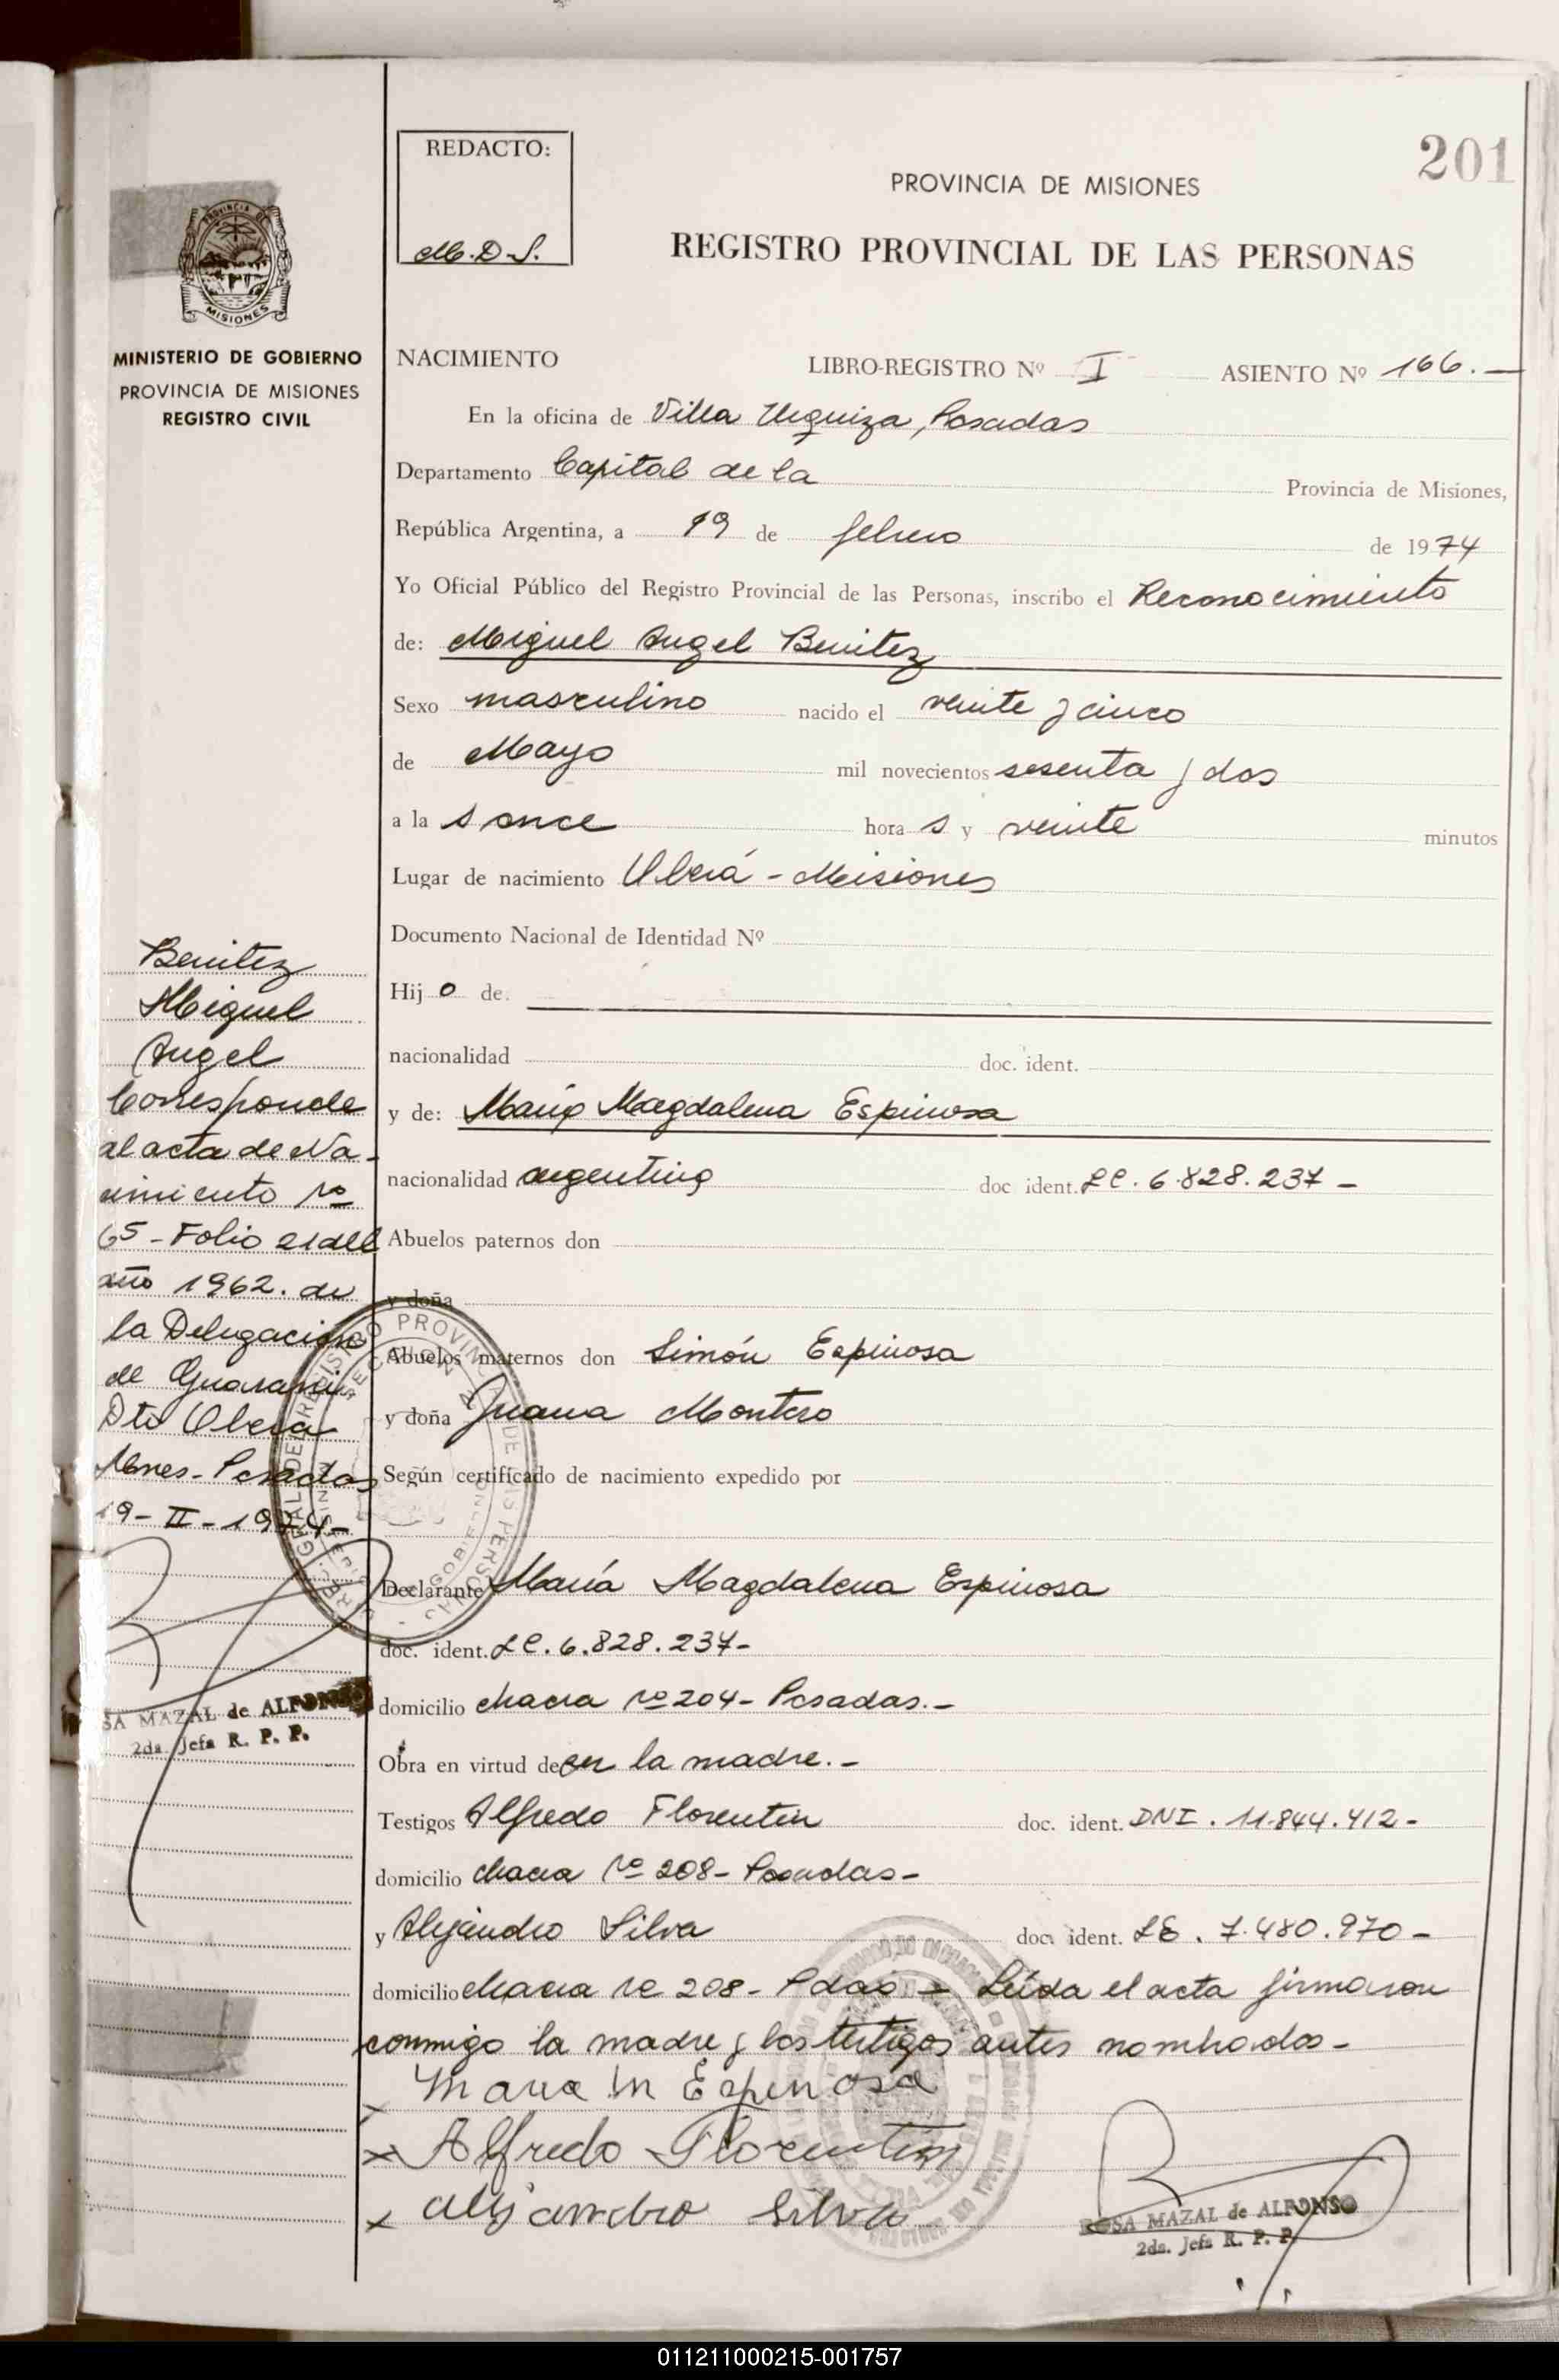 201
REDACTO:
M.D.S.
PROVINCIA DE MISIONES
REGISTRO PROVINCIAL DE LAS PERSONAS
PROVINCIA DE
MISIONES
MINISTERIO DE GOBIERNO
PROVINCIA DE MISIONES
REGISTRO CIVIL
NACIMIENTO LIBRO-REGISTRO Nº I ASIENTO Nº 166.—
En la oficina de Villa Urquiza, Posadas
Departamento Capital de la Provincia de Misiones,
República Argentina, a 19 de febrero de 1974
Yo Oficial Público del Registro Provincial de las Personas, inscribo el Reconocimiento
de: Miguel Angel Benitez
Sexo masculino nacido el veinte y cinco
de Mayo mil novecientos sesenta y dos
a la s once hora s y veinte minutos
Lugar de nacimiento Oberá - Misiones
Documento Nacional de Identidad Nº
Hij o de.
nacionalidad doc. ident.
y de: María Magdalena Espinosa
nacionalidad argentina doc ident. LC. 6.828.237 -
Abuelos paternos don
y doña
Abuelos maternos don Simón Espinosa
y doña Juana Montero
Según certificado de nacimiento expedido por
Declarante María Magdalena Espinosa
doc. ident. LC. 6.828.237-
domicilio chacra nº 204- Posadas.-
Obra en virtud de ser la madre.-
Testigos Alfredo Florentin doc. ident. DNI. 11.844.412-
domicilio chacra Nº 208- Posadas-
y Alejandro Silva doc. ident. LE. 7.480.970-
domicilio chacra nº 208- Pdas - Leída el acta firmaron
conmigo la madre y los testigos antes nombrados-
Maria M Espinosa
x Alfredo Florentin
x alejandro Silva
ROSA MAZAL de ALFONSO
2da. Jefa R. P. P.
Benitez
Miguel
Angel
Corresponde
al acta de Na-
cimiento nº
65 - Folio del
año 1962. de
la Delegación
de Guarani
Dto Oberá
Mnes- Posadas
19- II - 1974-
SA MAZAL de ALFONSO
2da. Jefa R. P. P.
011211000215-001757